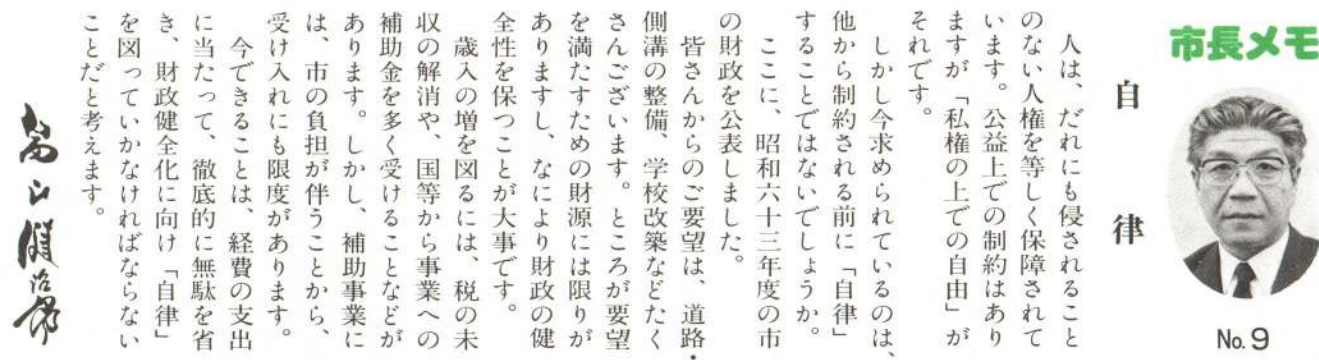 市長メモ
No. 9
自律
人は、だれにも侵されること
のない人権を等しく保障されて
います。公益上での制約はあり
ますが「私権の上での自由」が
それです。
しかし今求められているのは、
他から制約される前に「自律」
することではないでしょうか。
ここに、昭和六十三年度の市
の財政を公表しました。
皆さんからのご要望は、道路・
側溝の整備、学校改築などたく
さんございます。ところが要望
を満たすための財源には限りが
ありますし、なにより財政の健
全性を保つことが大事です。
歳入の増を図るには、税の未
収の解消や、国等から事業への
補助金を多く受けることなどが
あります。しかし、補助事業に
は、市の負担が伴うことから、
受け入れにも限度があります。
今できることは、経費の支出
に当たって、徹底的に無駄を省
き、財政健全化に向け「自律」
を図っていかなければならない
ことだと考えます。